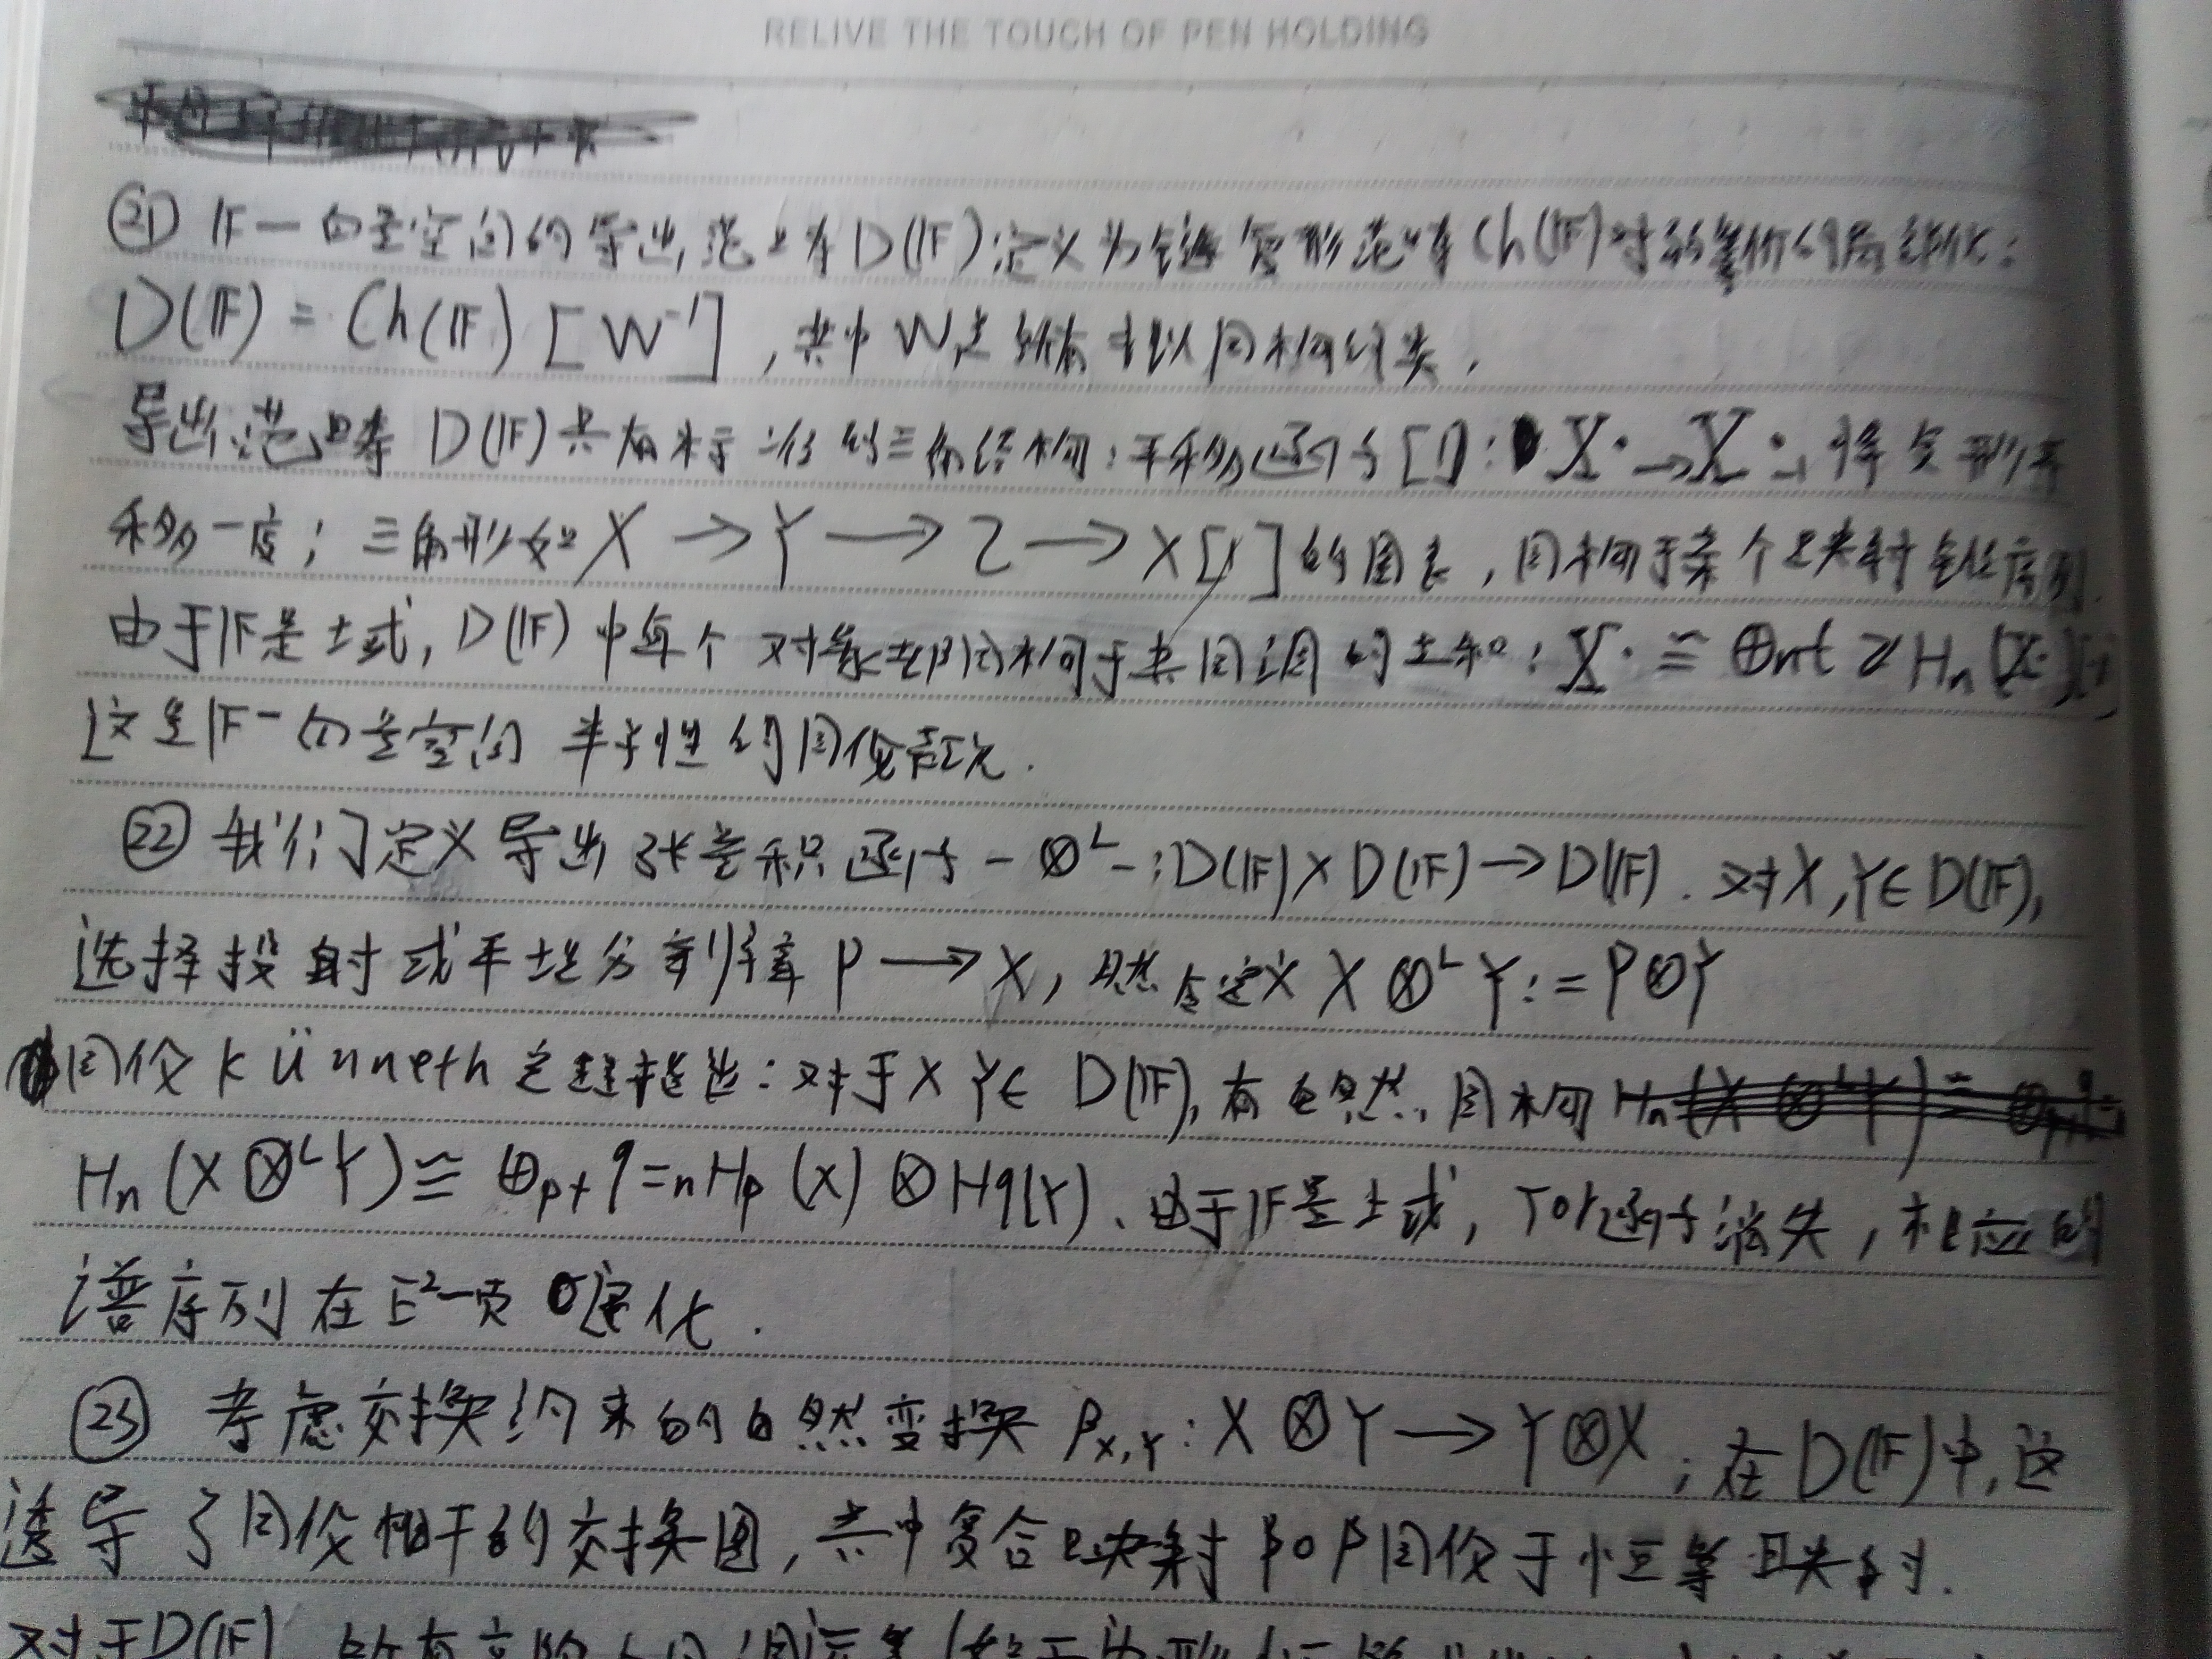 RELIVE THE TOUCH OF PEN HOLDING
㉑ 𝔽-向量空间的导出范畴 D(𝔽) 定义为链复形范畴 Ch(𝔽) 对弱等价的局部化:
D(𝔽) = Ch(𝔽) [W⁻¹], 其中 W 是所有拟同构的类.
导出范畴 D(𝔽) 具有标准的三角结构: 平移函子 [1]: X• → X•₋₁ 将复形平
移一度; 三角形如 X → Y → Z → X[1] 的图表, 同构于某个映射锥序列.
由于𝔽是域, D(𝔽) 中每个对象都同构于其同调的直和: X• ≅ ⊕n∈ℤ Hn(X•)[n]
这是𝔽-向量空间半单性的同伦表现.
㉒ 我们定义导出张量积函子 - ⊗ᴸ -: D(𝔽) × D(𝔽) → D(𝔽). 对 X, Y ∈ D(𝔽),
选择投射或平坦分解 P → X, 然后定义 X ⊗ᴸ Y := P ⊗ Y
同伦 Künneth 定理指出: 对于 X Y ∈ D(𝔽), 有自然同构
Hn (X ⊗ᴸ Y) ≅ ⊕p+q=n Hp (X) ⊗ Hq(Y). 由于𝔽是域, Tor函子消失, 相应的
谱序列在 E²-页退化.
㉓ 考虑交换约束的自然变换 βX,Y: X ⊗ Y → Y ⊗ X; 在 D(𝔽) 中, 这
诱导了同伦相干的交换图, 其中复合映射 β∘β 同伦于恒等映射.
对于D(𝔽)